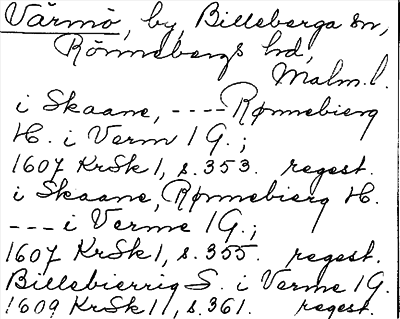 Värmö, by, Billeberga sn,
Rönnebergs hd,
Malm.l.
i Skaane, ---- Rønnebierg
H. i Verm 1 G.;
1607 KrSk 1, s. 353. regest.
i Skaane, Rønnebierg H.
--- i Verme 1 G.;
1607 KrSk 1, s. 355. regest.
Billebierrig S. i Verme 1 G.
1609 KrSk 1, s. 361. regest.